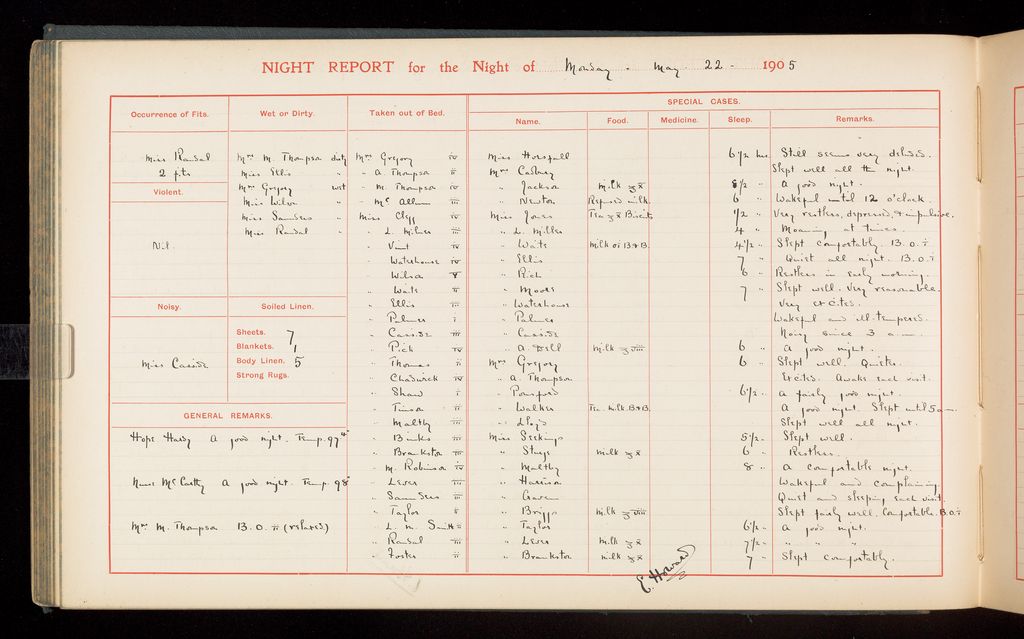 NIGHT REPORT for the Night of Monday. May 22 - 1905
Occurrence of Fits.
Miss Randal
2 fits
Violent.
Nil.
Noisy.
Miss Casside
Wet or Dirty.
Mrs M. Thompson dirty
Miss Ellis "
Mrs Gregory wet
Miss Wilson "
Miss Saunders "
Miss Randal "
Soiled Linen.
Sheets. 7
Blankets. 1
Body Linen. 5
Strong Rugs.
GENERAL REMARKS.
Hope Hardy A good night. Temp. 97
Nurse McCarthy A good night. Temp. 98
Mrs M. Thompson B.O. ii (relaxed)
Taken out of Bed.
Mrs Gregory iv
" A. Thompson ii
" M. Thompson iv
" Mc Allum iii
Miss Clegg iv
" L. Milnes iii
" Vint iv
" Waterhouse iv
" Wilson v
" Waite ii
" Ellis iii
" Palmer i
" Casside iii
" Pick iv
" Thomas ii
" Chadwick iv
" Shaw i
" Timson ii
" Maltby iii
" Binks iii
" Brankston iii
" M. Robinson iv
" Lever iii
" Saunders iii
" Taylor ii
" L. M. Smith ii
" Randal iii
" Foster ii
SPECIAL CASES.
Name. Food. Medicine. Sleep. Remarks.
Miss Horsfall 6 1/2 hrs Still seems very deluded.
Mrs Cadbury Slept well all the night.
" Jackson Milk ℥x 8 1/2 " A good night.
" Newton Refused milk. 6 " Wakeful until 12 o'clock.
Miss Jones Tea ℥x Biscuits 1/2 " Very restless, depressed, & impulsive.
" L. Milles 4 " Moaning at times.
" Waite Milk or B & B. 4 1/2 " Slept comfortably. B.O. i
" Ellis 7 " Quiet all night. B.O. i
" Rich 6 " Restless in early morning.
" Moore 7 " Slept well. Very reasonable.
" Waterhouse Very excited.
" Palmer Wakeful and ill-tempered.
" Casside Noisy since 3 a.m.
" A. Dell Milk ℥viii 6 " A good night.
Mrs Gregory 6 " Slept well. Quieter.
" A. Thompson Excited. Awake each visit.
" Ponsford 6 1/2 " A fairly good night.
" Walker Tea. Milk. B & B. A good night. Slept until 5 a.m.
" Lloyd Slept well all night.
Miss Seekings 5 1/2 " Slept well.
" Sturge Milk ℥x 6 " Restless.
" Maltby 8 " A comfortable night.
" Harrison Wakeful and complaining.
" Craven Quiet and sleeping each visit.
" Briggs Milk ℥viii Slept fairly well. Comfortable. B.O. i
" Taylor 6 1/2 " A good night.
" Lever Milk ℥x 7 1/2 " " " "
" Brankston Milk ℥x 7 " Slept comfortably.
E. Howard